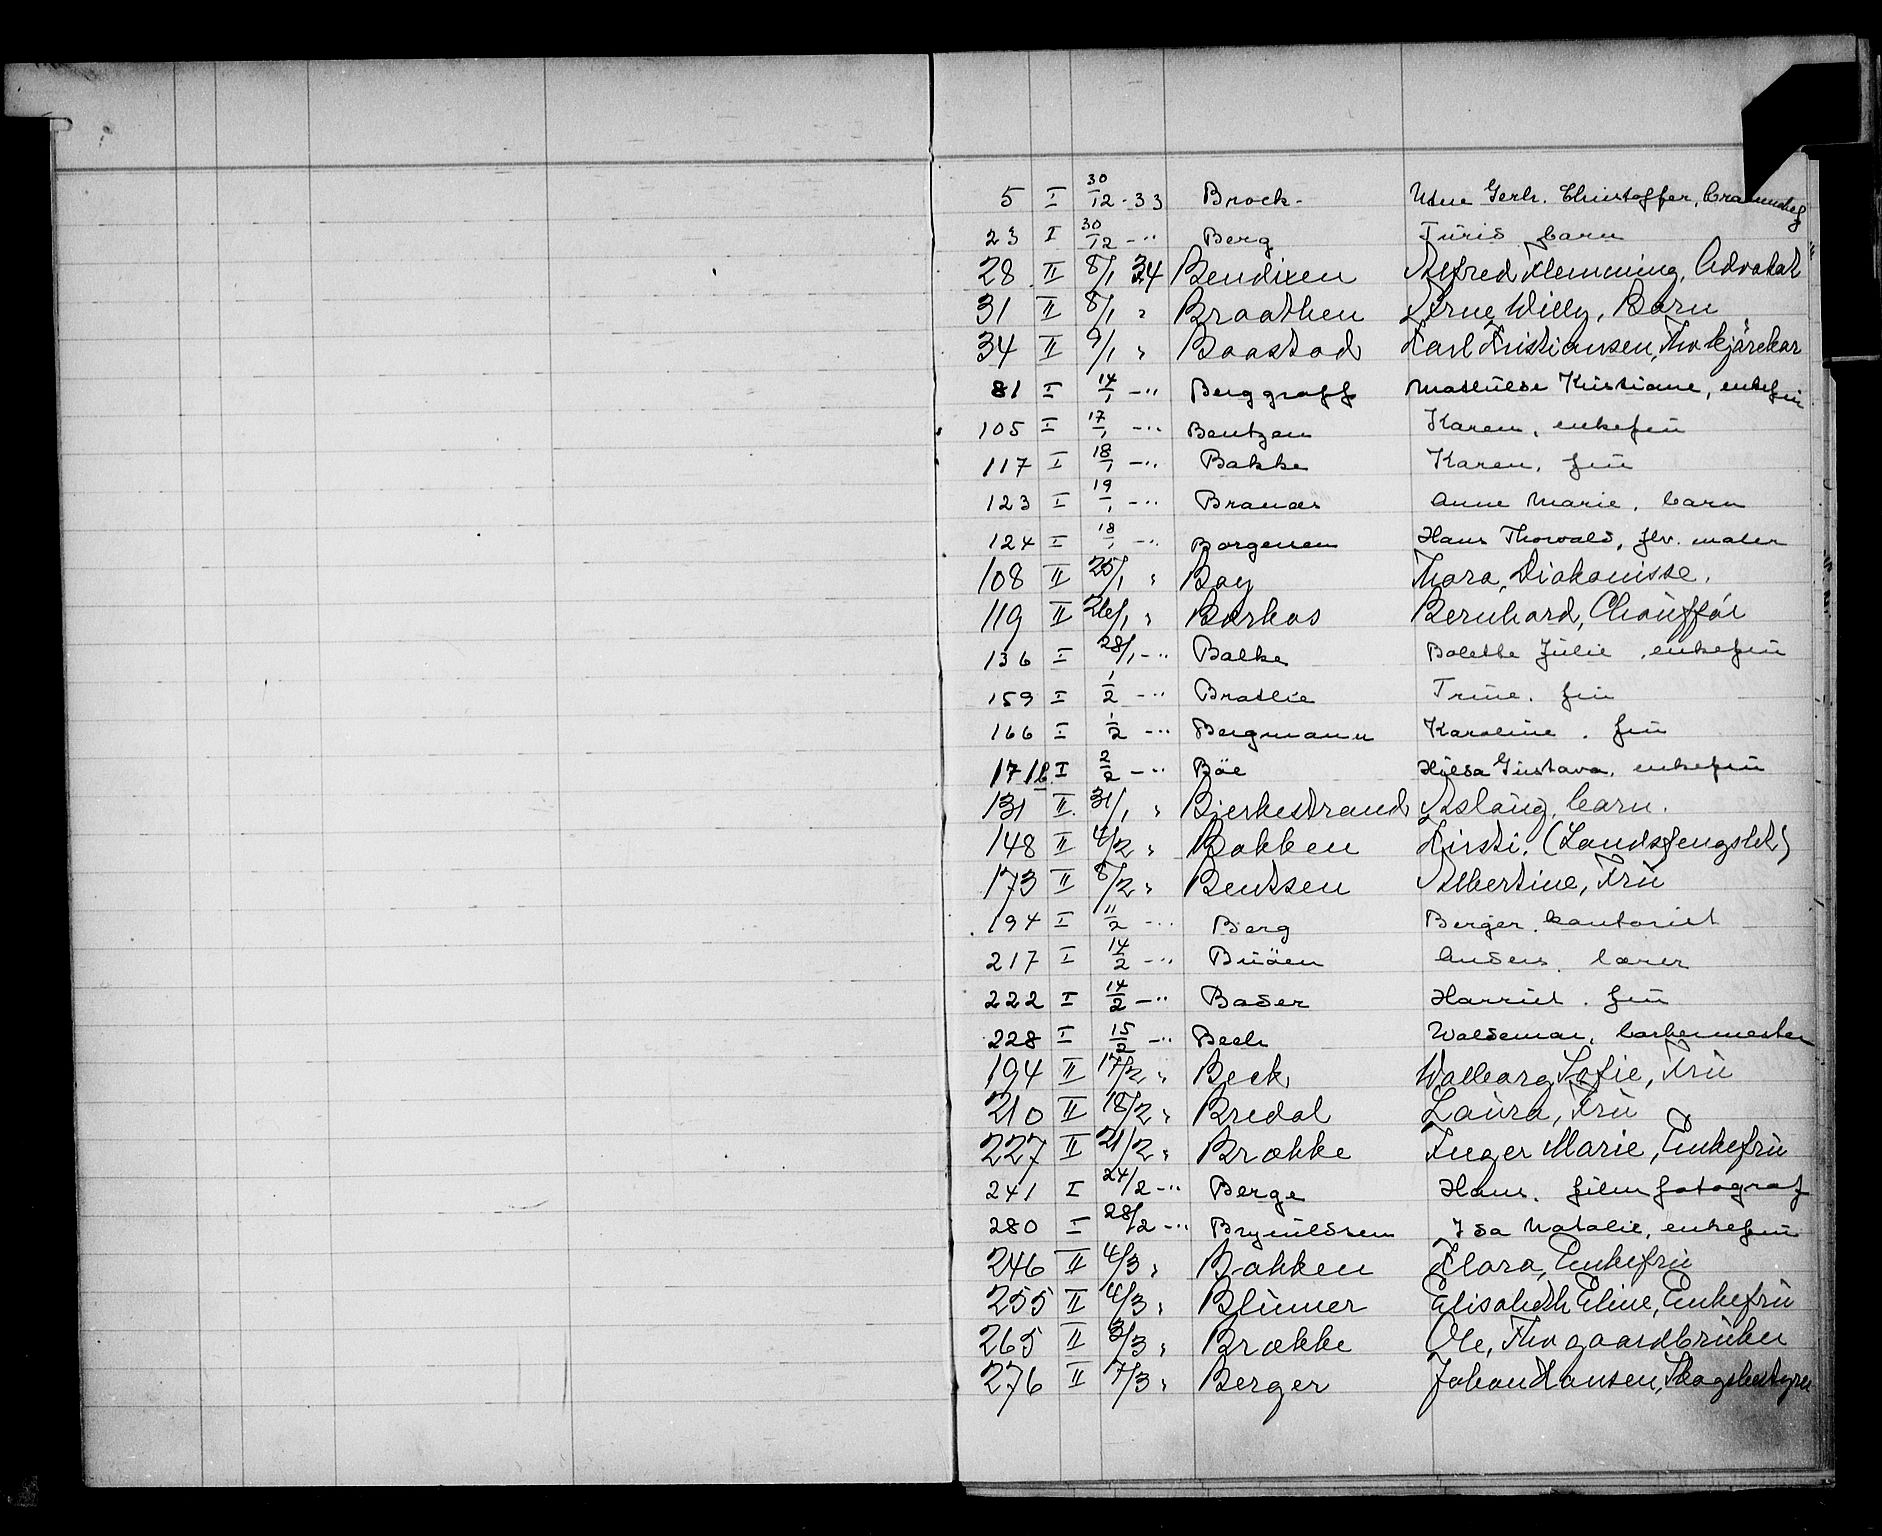 5 I 30/12-33 Brock- Gerh. Christoffer,
23 I 30/12 -" Berg Turid barn
28 II 8/1 34 Bendixen Alfred Flemming, Advokat
31 II 8/1 " Braathen Arne Willy, Barn
34 II 9/1 " Baastad Karl Kristiansen, Fhv kjørekar
81 I 14/1 -" Berggraff Mathilde Kristiane, enkefru
105 I 17/1 -" Bentzen Karen, enkefru
117 I 18/1 -" Bakke Karen, fru
123 I 19/1 -" Brandes Anne Marie, barn
124 I 18/1 -" Borgersen Hans Thorvald, fhv. maler
108 II 25/1 " Bay Thora, Diakonisse.
119 II 26/1 " Barkos Bernhard, Chauffør
136 I 28/1 -" Balke Bolette Julie, enkefru
159 I 1/2 -" Bratlie Trine, fru
166 I 1/2 -" Bergmann Karoline, fru
171b I 2/2 -" Böe Hilda Gustava, enkefru
131 II 31/1 " Bjerkestrand Aslaug, barn.
148 II 4/2 " Bakken Kirsti, (Landsfengslet)
173 II 8/2 " Bentsen Albertine, Fru
194 I 11/2 -" Berg Berger, kontorist
217 I 14/2 -" Buöen Anders, lærer
222 I 14/2 -" Bader Harriet, fru
228 I 15/2 -" Bech Waldemar, barbermester
194 II 17/2 " Beck Walborg Sofie, Fru
210 II 18/2 " Bredal Laura, Fru
227 II 21/2 " Brække Inger Marie, Enkefru
241 I 24/2 -" Berge Hans, filmfotograf
280 I 28/2 -" Brynildsen Ida Natalie, enkefru
246 II 4/3 " Bakken Klara, Enkefru
255 II 4/3 " Blümer Elisabeth Eline, Enkefru
265 II 3/3 " Brække Ole, Fhv gaardbruker
276 II 7/3 " Berger Johan Hansen, Skogbestyrer